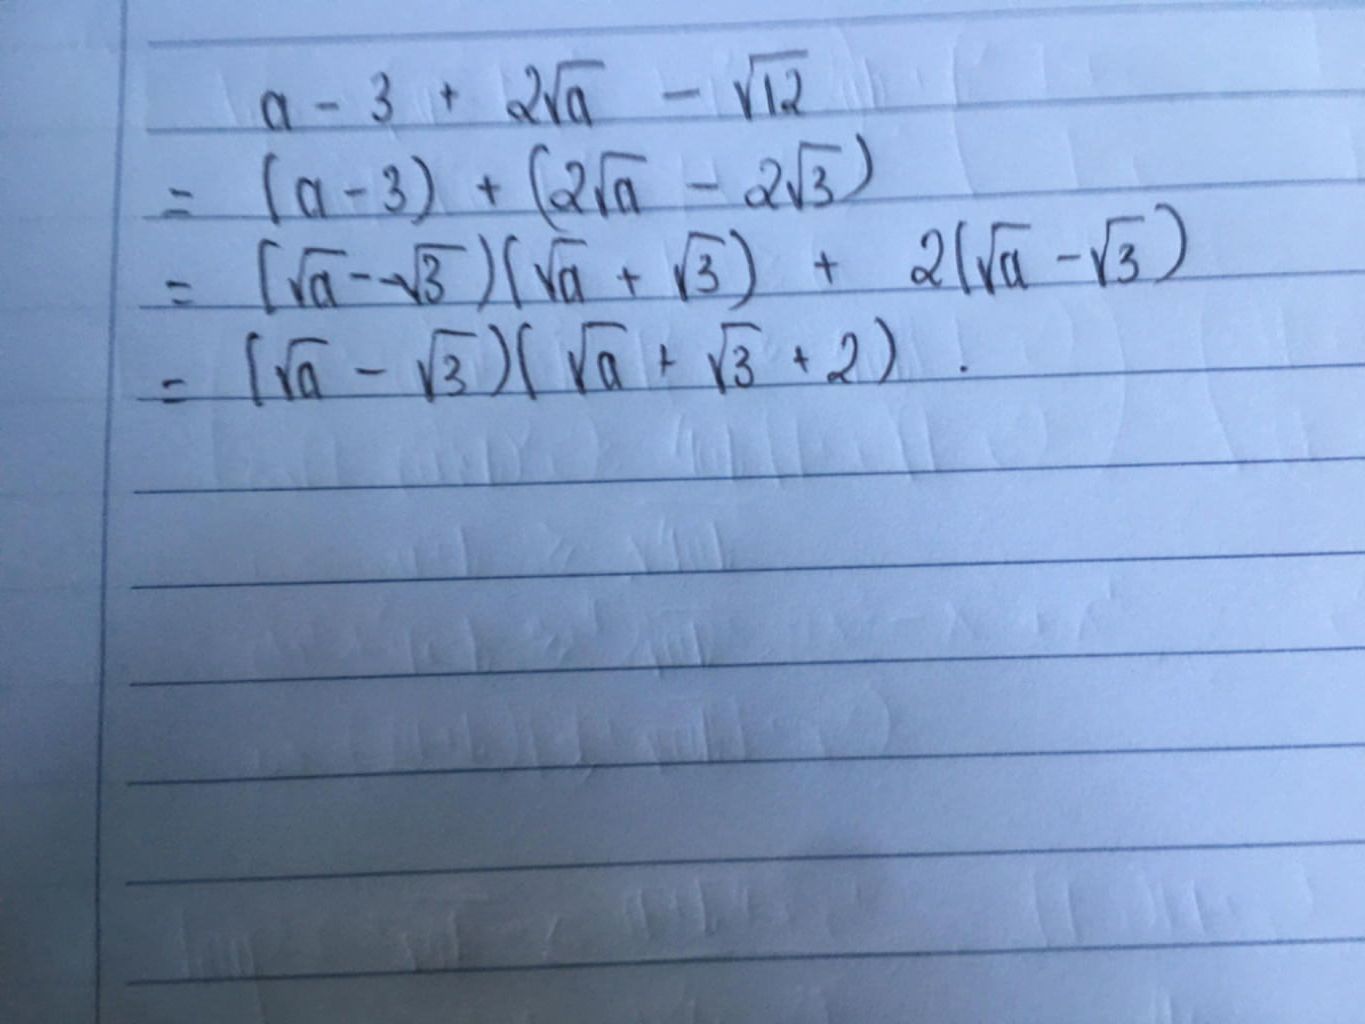 a - 3 + 2√a - √12
= (a - 3) + (2√a - 2√3)
= (√a - √3)(√a + √3) + 2(√a - √3)
= (√a - √3)(√a + √3 + 2) .